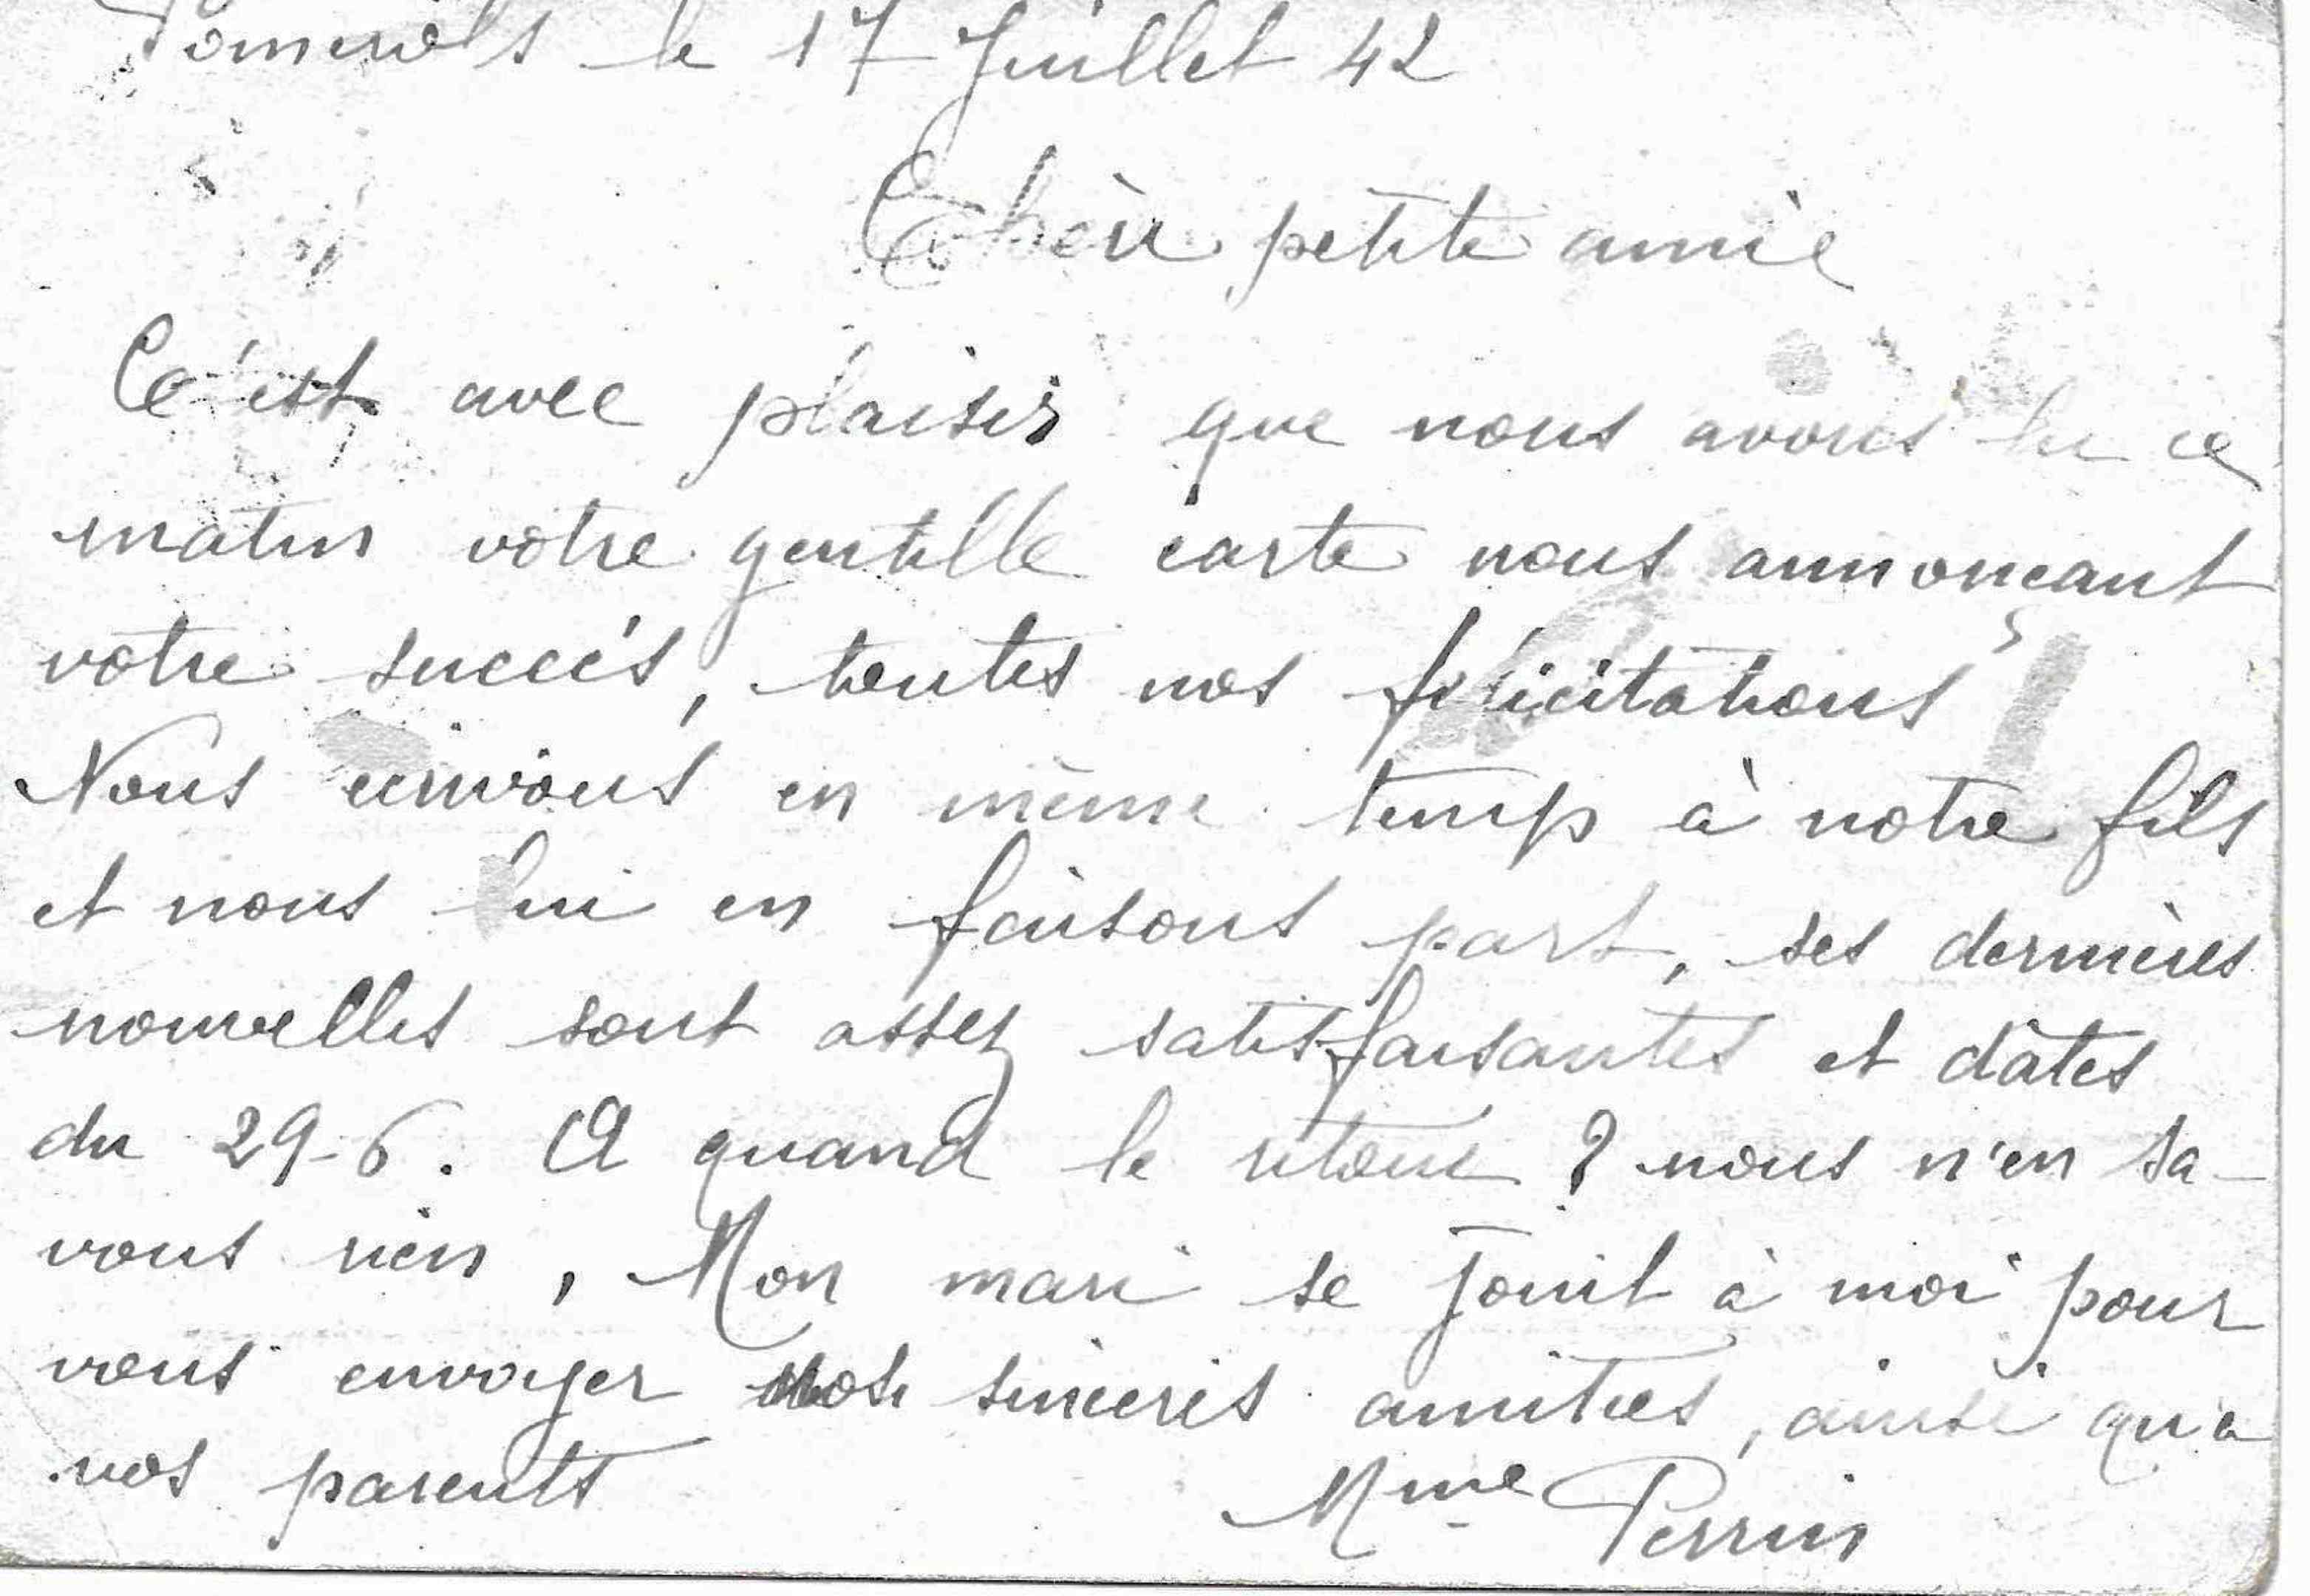 Pomerols le 17 Juillet 42
Chère petite amie
C'est avec plaisir que nous avons lu ce
matin votre gentille carte nous annonçant
votre succès, toutes nos félicitations
Nous écrivons en même temp à notre fils
et nous lui en faisons part, ses dernières
nouvelles sont assez satisfaisantes et dates
du 29-6. A quand le retour ? nous n'en sa-
vons rien, Mon mari se joint à moi pour
vous envoyer nos sincères amitiés, ainsi qu'a
vos parents
Mme Perrin